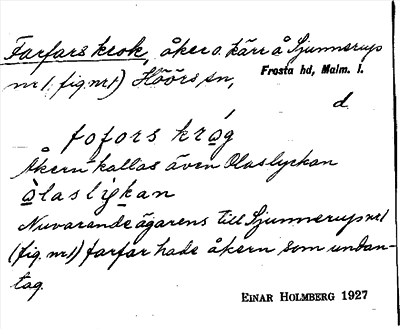 Farfars krok, åker o. kärr å Sjunnerup
nr 1 (fig. nr 1) Höörs sn,
Frosta hd, Malm. l.
d.
fofors krǫ́g
Åkern kallas även Olaslyckan
ǫ̀laslykan
Nuvarande ägarens till Sjunnerup nr 1
(fig. nr 1) farfar hade åkern som undan-
tag.
EINAR HOLMBERG 1927